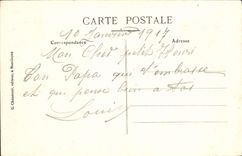 CARTE POSTALE
10 Janvier 1917
Correspondance
Adresse
Mon Cher petit Henri
Ton Papa qui t'embrasse
et qui pense bien a toi
Louis